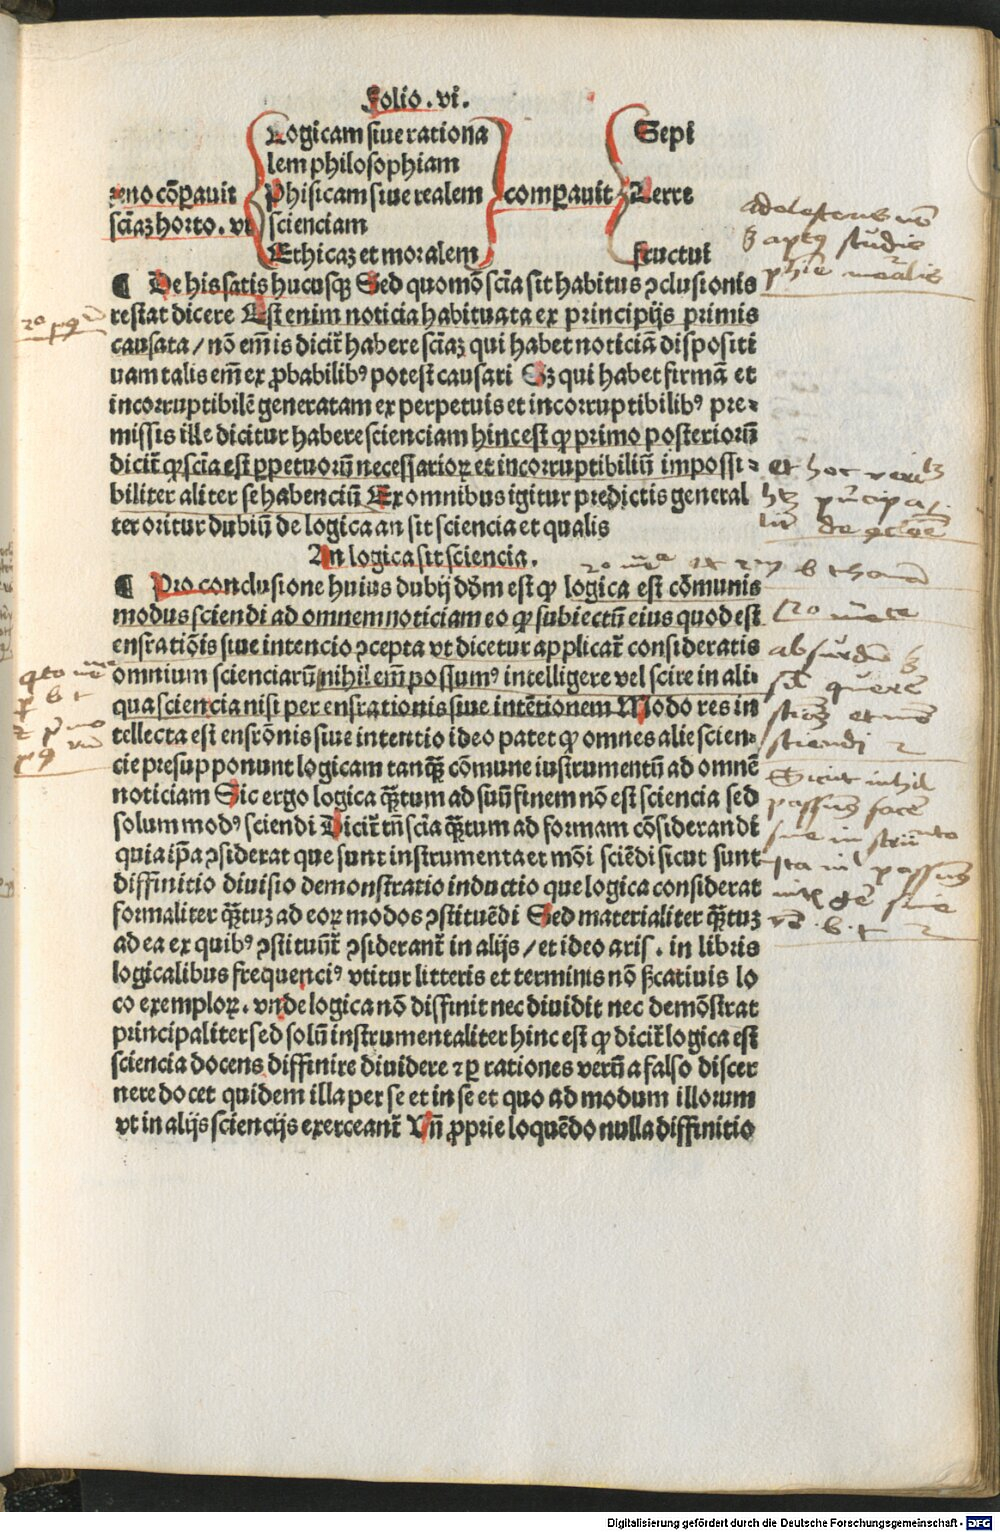 Folio .vi.
Logicam siue rationa
lem philosophiam
zeno cōꝑauit
Phisicam siue realem
compauit
Sepi
Terre
fructui
sciaꝫ horto. vt
scienciam
Ethicaꝫ et moralem
¶ De his satis hucusqꝫ Sed quomō scīa sit habitus ꝯclusionis
restat dicere Est enim noticia habituata ex principijs primis
causata / nō em̄ is dicit̄ habere sciāꝫ qui habet noticiā dispositi
uam talis em̄ ex ꝓbabilibꝰ potest causari Sꝫ qui habet firmā et
incorruptibilē generatam ex perpetuis et incorruptibilibꝰ pre⸗
missis ille dicitur habere scienciam hinc est ꝙ primo posteriorū
dicit̄ ꝙ scīa est ꝑpetuorū necessarioꝝ et incorruptibiliū impossi⸗
biliter aliter se habenciū Ex omnibus igitur predictis general
ter oritur dubiū de logica an sit sciencia et qualis
An logica sit sciencia.
¶ Pro conclusione huius dubij dōm est ꝙ logica est cōmunis
modus sciendi ad omnem noticiam eo ꝙ subiectū eius quod est
ens ratiōis siue intencio ꝯcepta vt dicetur applicat̄ consideratis
omnium scienciarū nihil em̄ possumꝰ intelligere vel scire in ali⸗
qua sciencia nisi per ens rationis siue intētionem Modo res in
tellecta est ens rōnis siue intentio ideo patet ꝙ omnes alie scien⸗
cie presupponunt logicam tanqꝫ̄ cōmune iustrumentū ad omnē
noticiam Sic ergo logica qꝫ̄tum ad suū finem nō est sciencia sed
solum modꝰ sciendi Dicit̄ tn̄ scīa qꝫ̄tum ad formam cōsiderandi
quia ip̄a ꝯsiderat que sunt instrumenta et mōi sciēdi sicut sunt
diffinitio diuisio demonstratio inductio que logica considerat
formaliter qꝫ̄tuꝫ ad eoꝝ modos ꝯstituēdi Sed materialiter qꝫ̄tuꝫ
ad ea ex quibꝰ ꝯstituūt̄ ꝯsiderant̄ in alijs / et ideo aris. in libris
logicalibus frequenciꝰ vtitur litteris et terminis nō ſꝫcatiuis lo
co exemploꝝ. vnde logica nō diffinit nec diuidit nec demōstrat
principaliter sed solū instrumentaliter hinc est ꝙ dicit̄ logica est
sciencia docens diffinire diuidere ⁊ ꝑ rationes verū a falso discer
nere docet quidem illa per se et in se et quo ad modum illorum
vt in alijs sciencijs exerceant̄ Vn̄ ꝓprie loquēdo nulla diffinitio
Digitalisierung gefördert durch die Deutsche Forschungsgemeinschaft - DFG